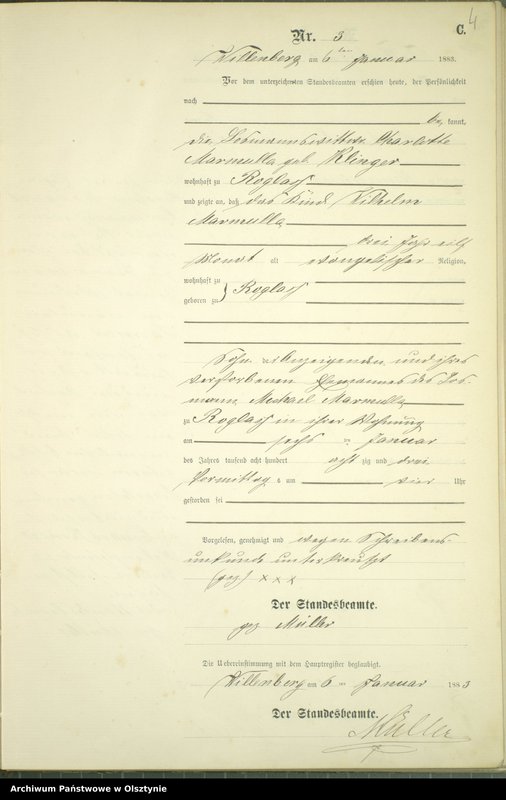 C. 4
Nr. 3
Willenberg am 6ten Januar 1883.
Vor dem unterzeichneten Standesbeamten erschien heute, der Persönlichkeit
nach
be kannt,
die Losmannswittwe Charlotte
Marmulla geb. Klinger
wohnhaft zu Roglass
und zeigte an, daß das Kind Wilhelm
Marmulla
drei Jahr elf
Monat alt evangelischer Religion,
wohnhaft zu
geboren zu } Roglass
Sohn Anzeigenden und ihres
verstorbenen Ehemannes des Los-
mann Michael Marmulla
zu Roglass in ihrer Wohnung
am sechs ten Januar
des Jahres tausend acht hundert acht zig und drei
Vormittag s um vier Uhr
gestorben sei
Vorgelesen, genehmigt und wegen Schreibens-
unkunde unterkreuzt
(gez) x x x
Der Standesbeamte.
gez Müller
Die Uebereinstimmung mit dem Hauptregister beglaubigt.
Willenberg am 6 ten Januar 1883
Der Standesbeamte.
Müller
Archiwum Państwowe w Olsztynie